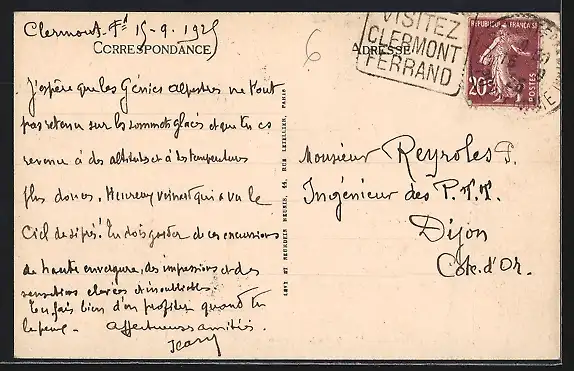 Clermont-Fd 15-9-1925
CORRESPONDANCE
J'espère que les Génies alpestres ne t'ont
pas retenu sur les sommets glacés et que tu es
revenu à des altitudes et à des températures
plus douces. Heureux veinard qui a vu le
Ciel de si près! Tu dois garder de ces excursions
de haute envergure, des impressions et des
sensations élevées et inoubliables
Tu fais bien d'en profiter quand tu
le peux. Affectueuses amitiés.
6
ADRESSE
VISITEZ
CLERMONT
FERRAND
REPUBLIQUE FRANÇAISE
20c
POSTES
LEVY ET NEURDEIN REUNIS, 44, RUE LETELLIER, PARIS
Monsieur Reyroles P.
Ingénieur des P.T.T.
Dijon
Côte-d'Or.